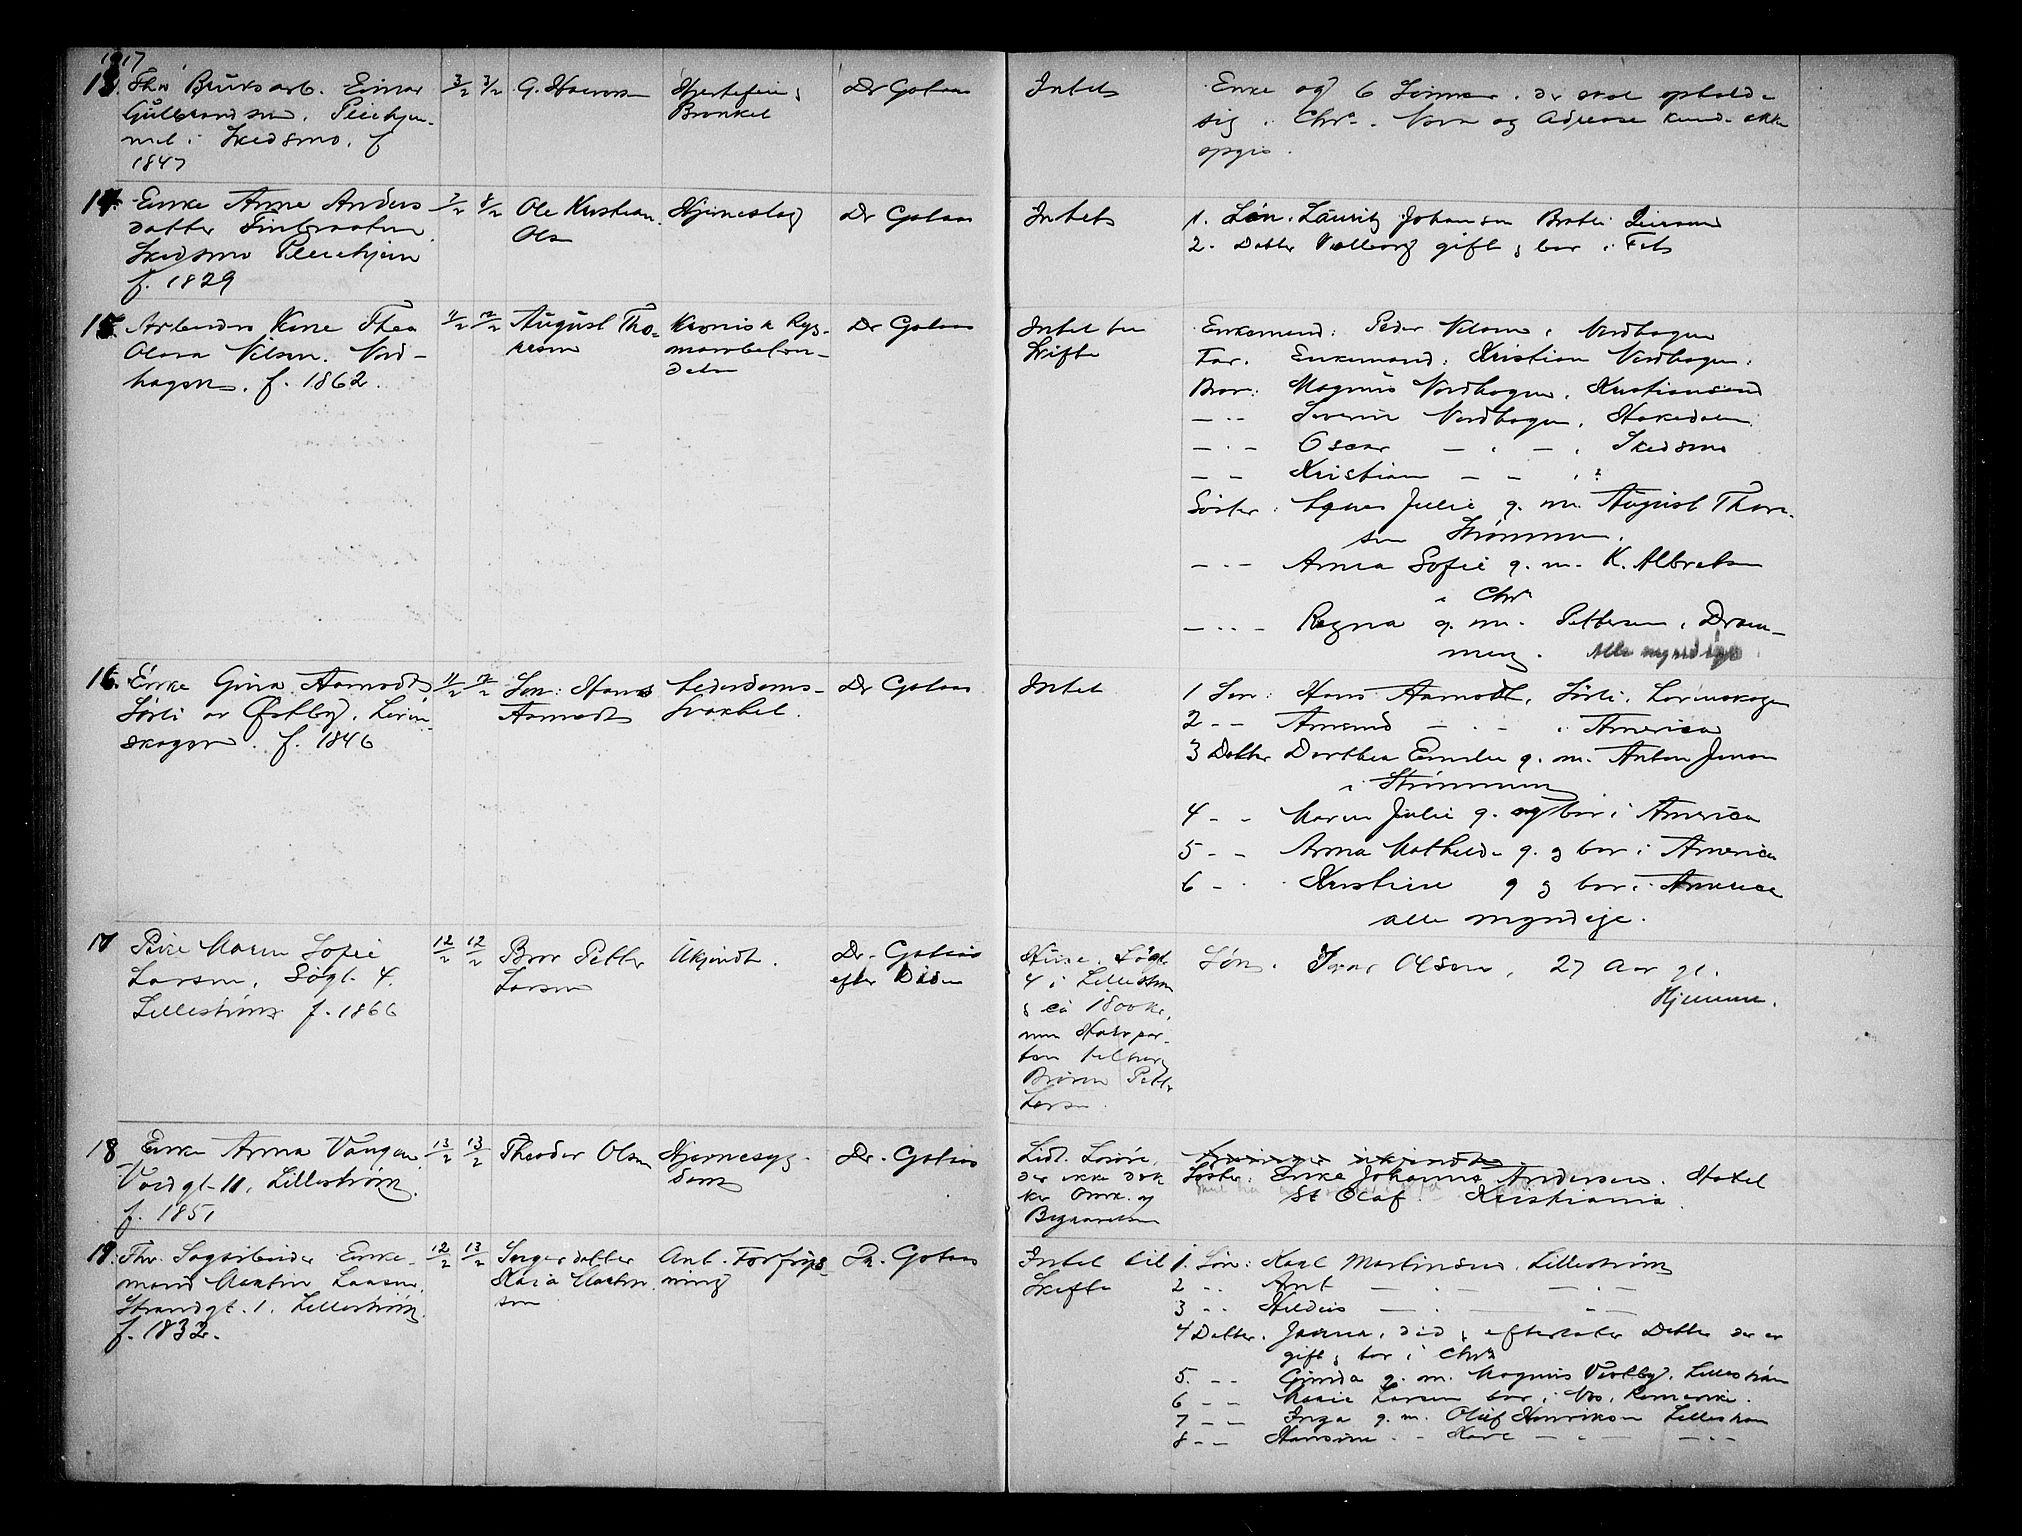 1917
13. Fhv Bruksarb. Einar
Gulbrandsen, Pleiehjem-
met i Skedsmo. f
1847
3/2 3/2
G. Hansen
Hjertefeil &
Bronkit
Dr Gotaas
Intet
Enke og 6 Sønner, der skal opholde
sig i Chra. Navn og Adresse kunde ikke
opgis.
14. Enke Anne Anders
datter
Skedsmo Pleiehjem
f. 1829
7/2 8/2
Ole Kristian
Olsen
Hjerneslag
Dr Gotaas
Intet
1. Søn. Lauritz Johansen
2. Datter Valborg gift & bor i Fet
15 Arbeiders Kone Thea
Olava Nilsen. Nord-
hagen. f. 1862.
11/2 12/2
August Tho-
resen
Kronisk Ryg-
marvbeten-
delse
Dr Gotaas
Intet til
Skifte
Enkemand: Peder Nilsen i Nordhagen
Far. Enkemand. Kristian Nordhagen.
Bror: Magnus Nordhagen, Kristiansand
— - - Severin Nordhagen,
— - — Oscar — . — . Skedsmo
— — Kristian — — . ?
Søster: Agnes Julie g. m. August Thore-
sen Strømmen.
— - — Anna Sofie g. m. K. Albretsen
i Chra
— . . — Ragna g. m. Pettersen i Dram-
men. Alle myndige
16. Enke Gina Aamodt
Sørli av Østby, Løren-
skogen. f. 1846
11/2 12/2
Søn: Hans
Aamodt
Alderdoms-
svakhet.
Dr Gotaas
Intet
1 Søn: Hans Aamodt, Sørli, Lørenskogen
2 - - Amund — . - i America
3 Datter Dorthea Emilie g. m. Anton Jensen
i Strømmen
4 - - Maren Julie g. og bor i America
5 - - Anna Mathilde g. & bor i America
6 - . Kristine g & bor i America
alle myndige.
17 Pike Maren Sofie
Larsen, Søgt. 4.
Lillestrøm f. 1866
12/2 12/2
Bror Petter
Larsen
Ukjendt.
Dr. Gotaas
efter Døden
Huse. Søgt.
4 i Lillestrøm
& ca 1800 kr.
men Halvpar-
ten tilhører
Broren Petter
Larsen.
Søn. Ivar Olsen, 27 Aar gl.
Hjemme.
18 Enke Anna Vangen
Voldgt. 11, Lillestrøm.
f. 1851
13/2 13/2
Theodor Olsen
Hjernesyg-
dom
Dr. Gotaas
Lidt Løsøre,
der ikke dæk
ker Omk. og
Begravelsen
Arvinger ukjendte
Søster: Enke Johanne Andersen. Hotel
St Olaf. Kristiania.
19. Fhv. Sagarbeider Enke-
mand Martin Larsen.
Strandgt. 1. Lillestrøm.
f. 1832.
12/2 13/2
Svigerdatter
Kaia Martin
sen
Ant. Forfrys-
ning
Dr. Gotaas
Intet til
Skifte
1. Søn: Karl Martinsen, Lillestrøm
2 - . Ant — . — — . —
3 - . — . — - —
4 Datter. Janna, død & efterlater Datter der er
gift & bor i Chra
5. - - Gunda g. m. Magnus Vestby, Lillestrøm
6 - - Marie Larsen bor i Nes, Romerike.
7 - - Inga g. m. Oluf Henriksen Lillestrøm
8 - - Hansine - - Kare — . — — . -